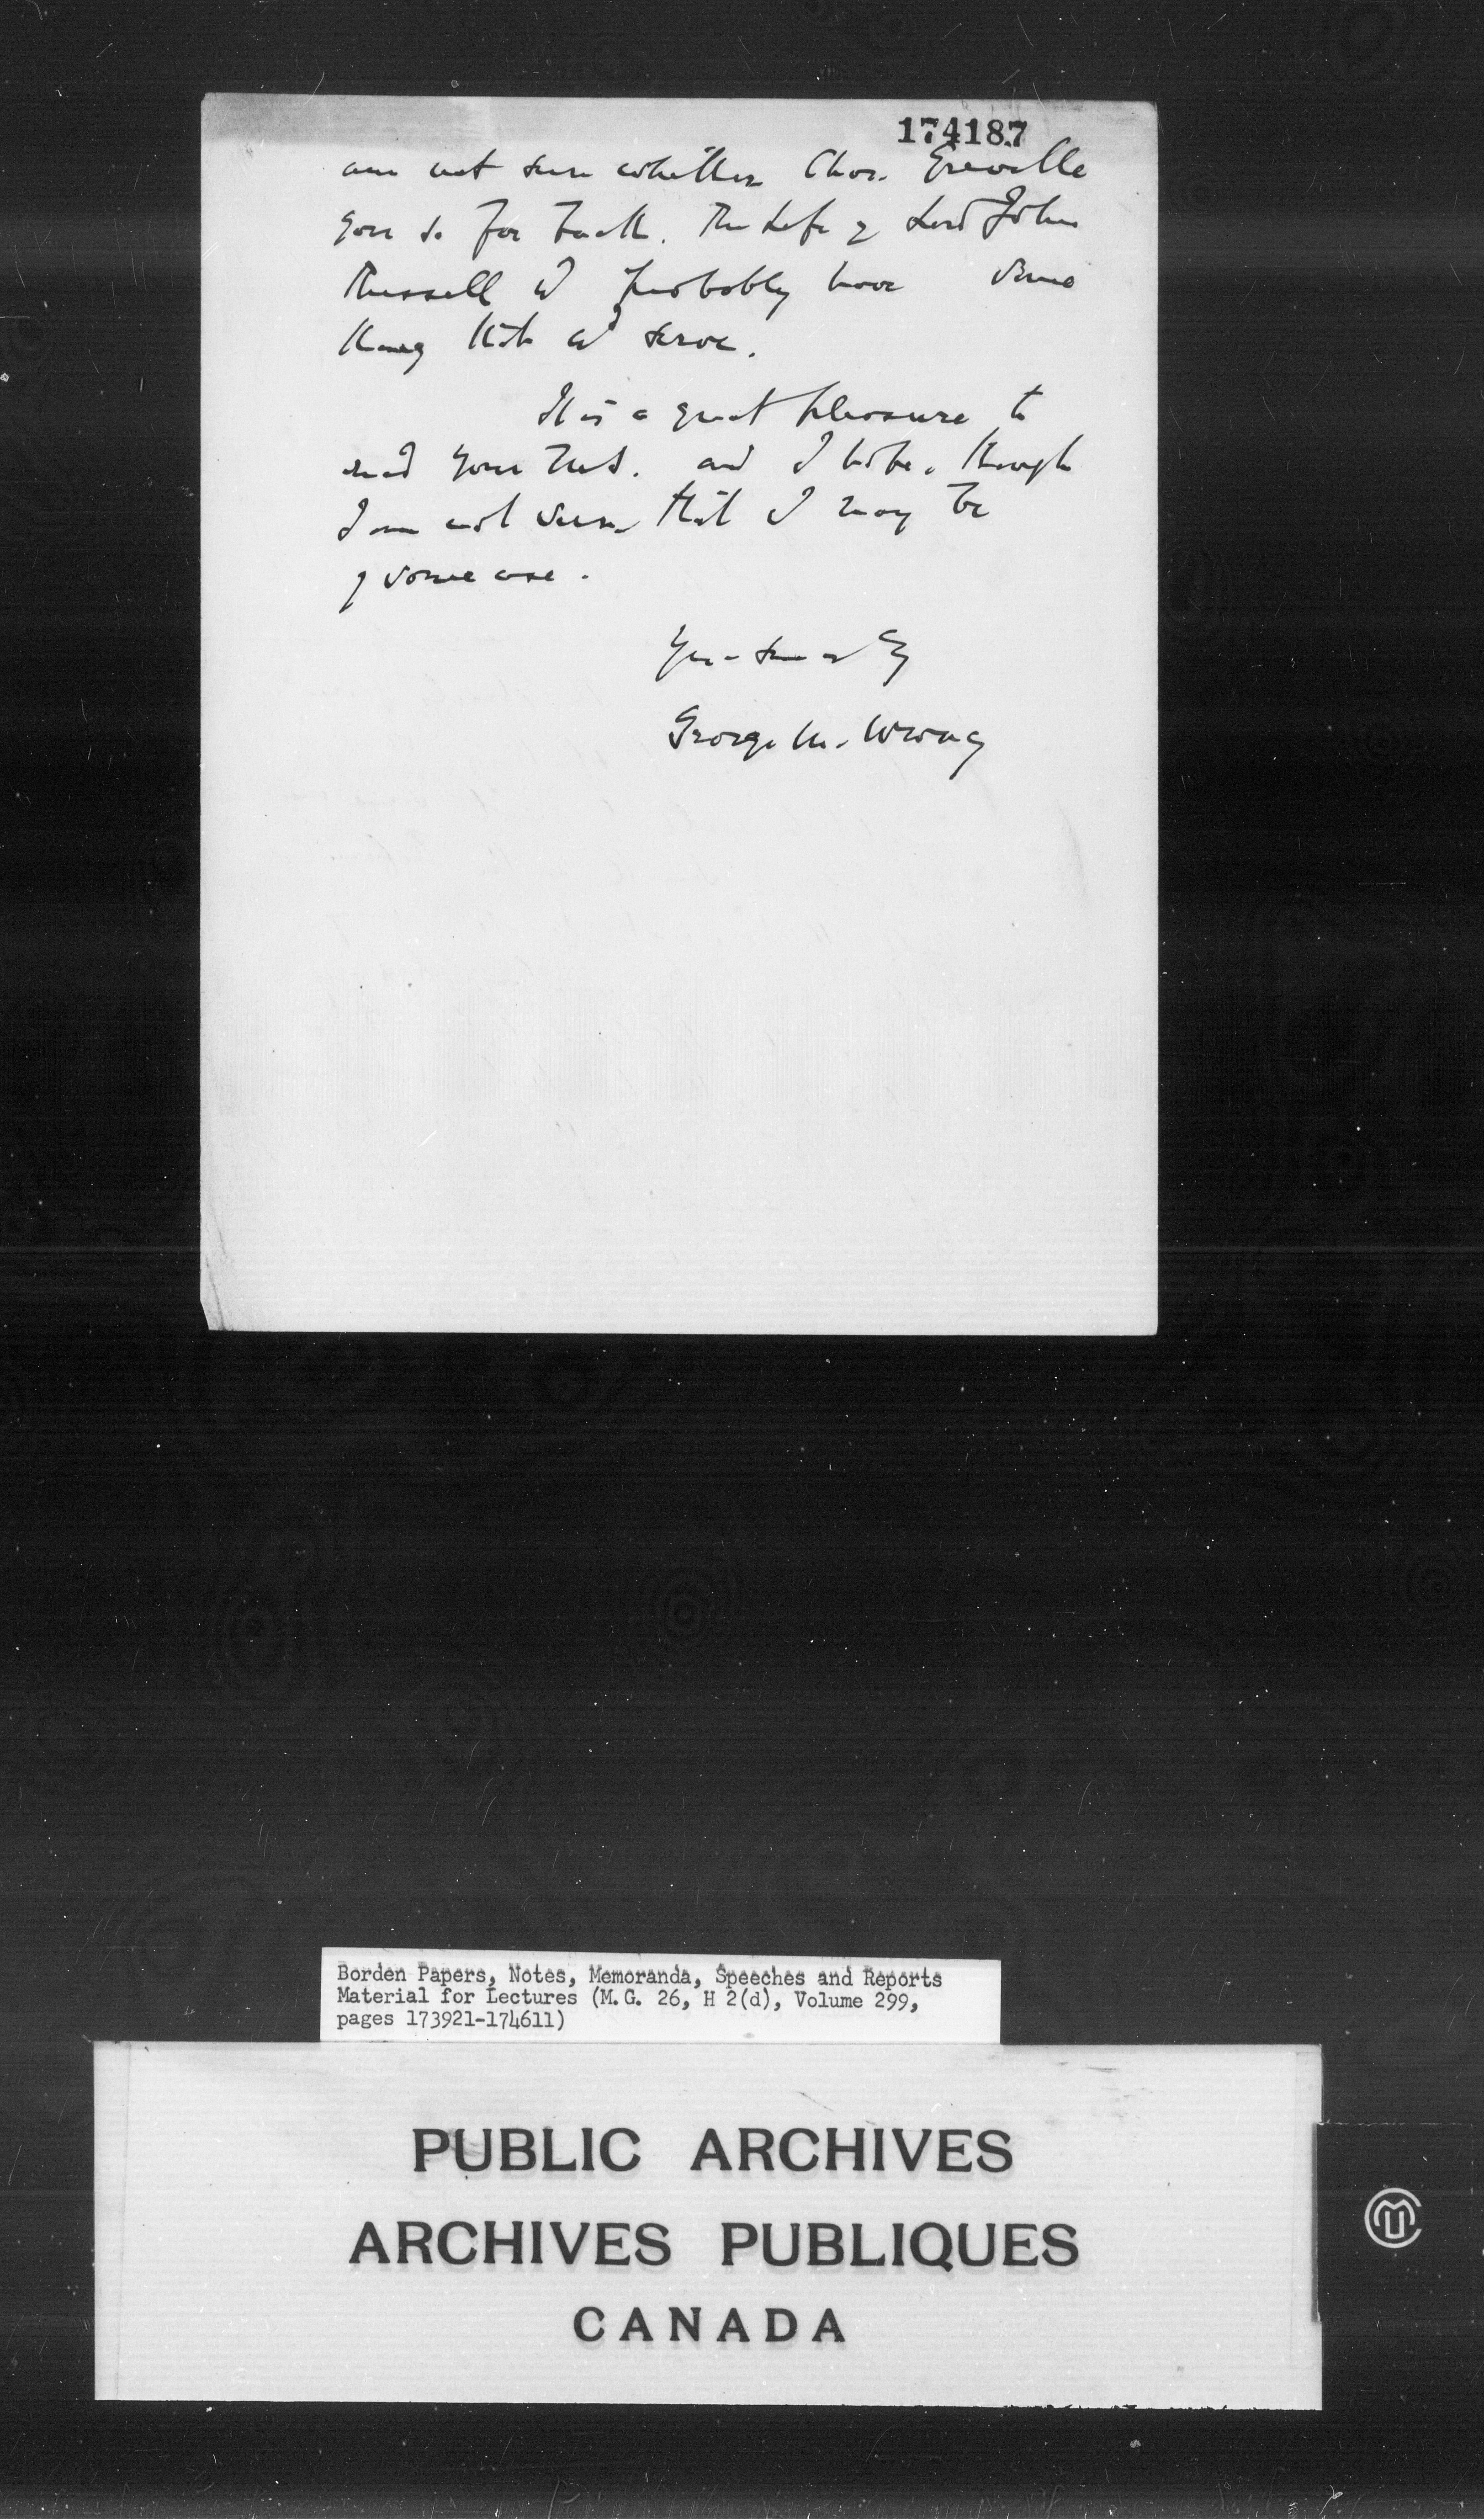 174187
am not sure whether Chas. Greville
goes so far back. The Life of Lord John
Russell wd probably have some
thing that wd serve.
It is a great pleasure to
read your MS. and I hope, though
I am not sure that I may be
of some use.
Yours sincerely
George M. Wrong
Borden Papers, Notes, Memoranda, Speeches and Reports
Material for Lectures (M.G. 26, H 2(d), Volume 299,
pages 173921-174611)
PUBLIC ARCHIVES
ARCHIVES PUBLIQUES
CANADA